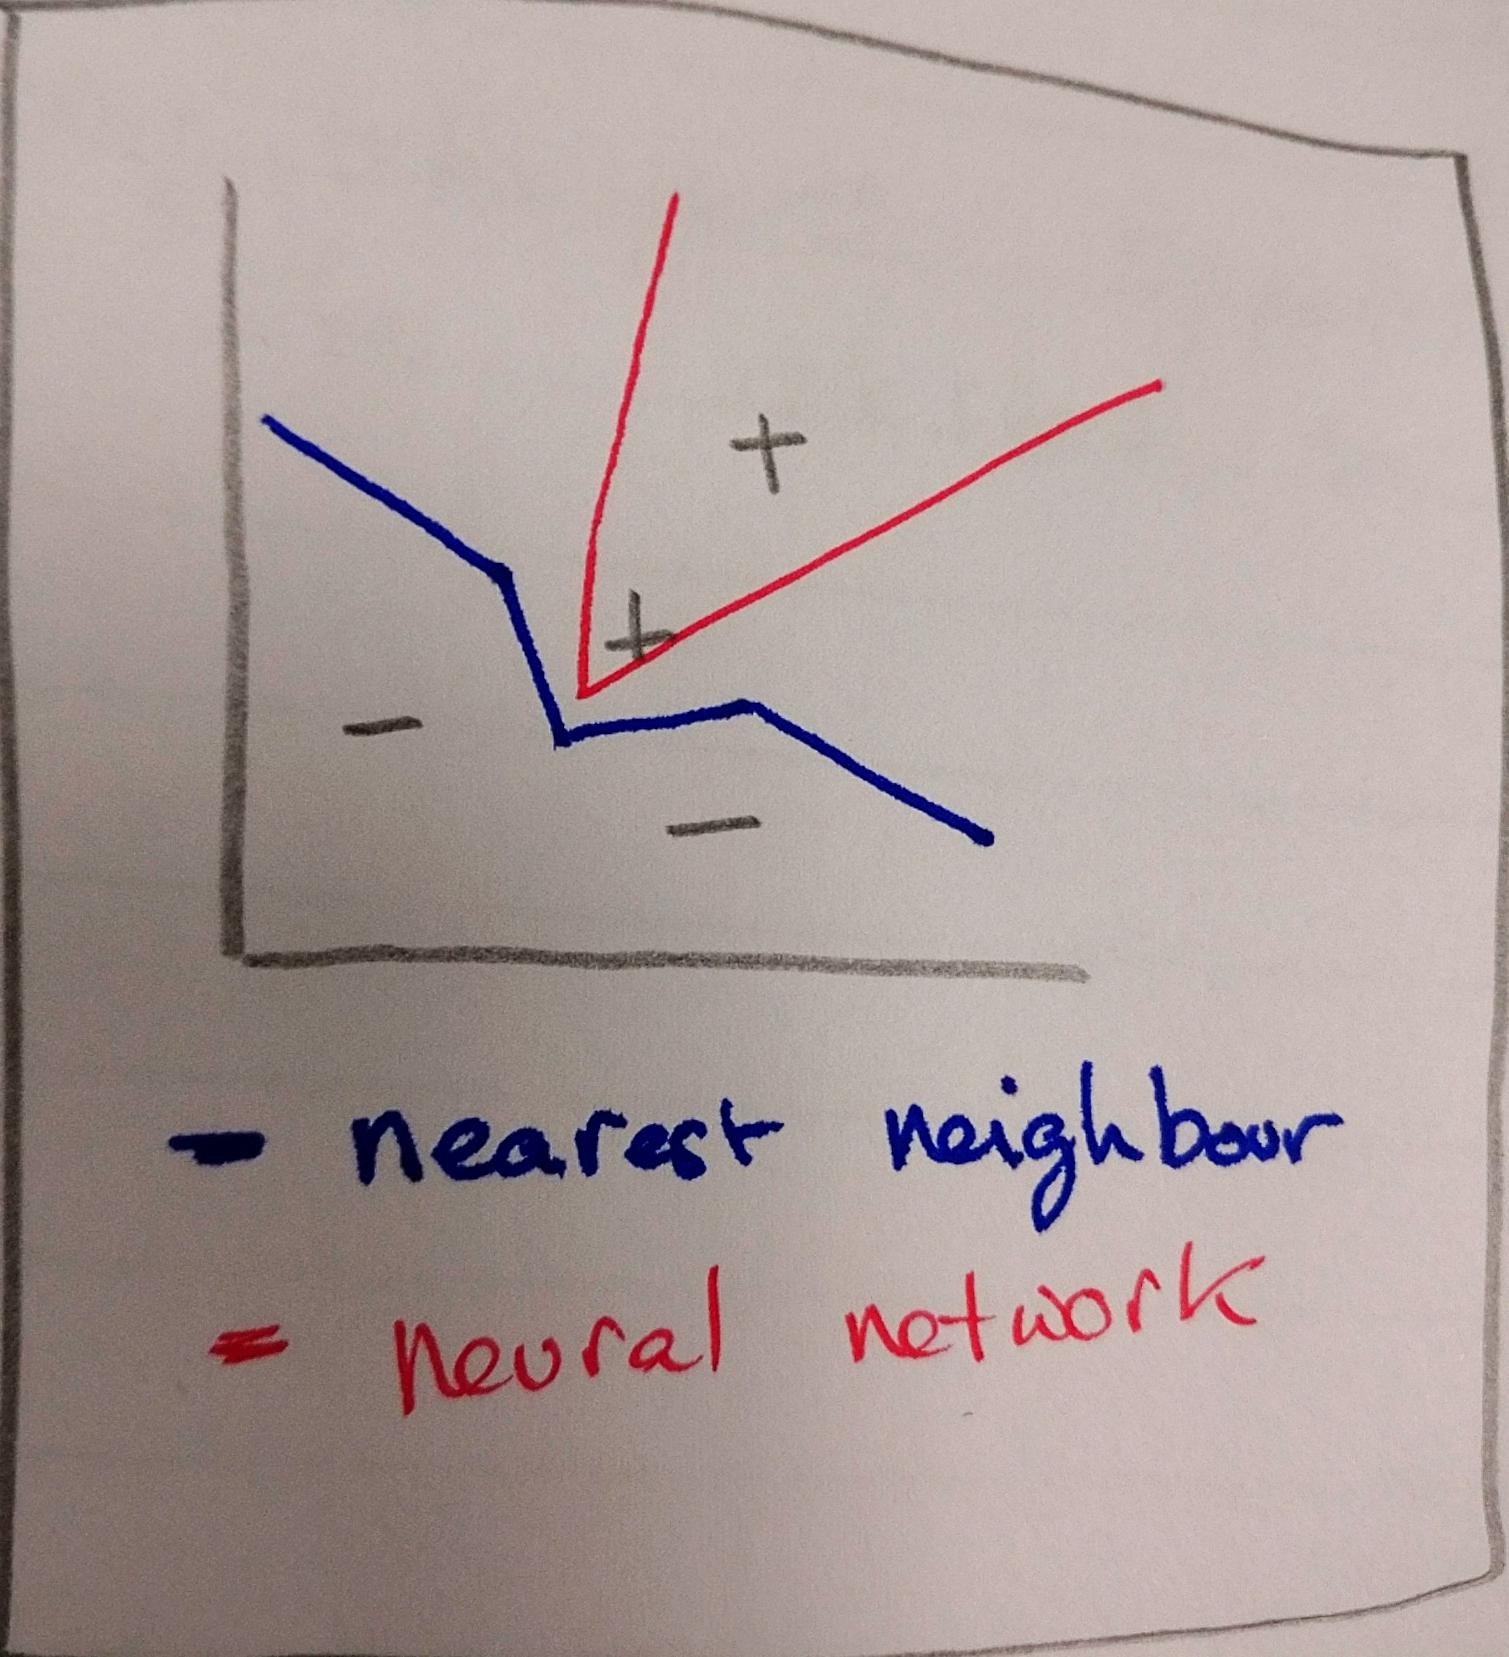 +
+
-
-
- nearest neighbour
= neural network